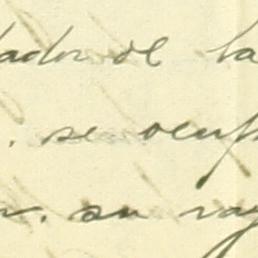 ador de la
. se ocup
r. su ray